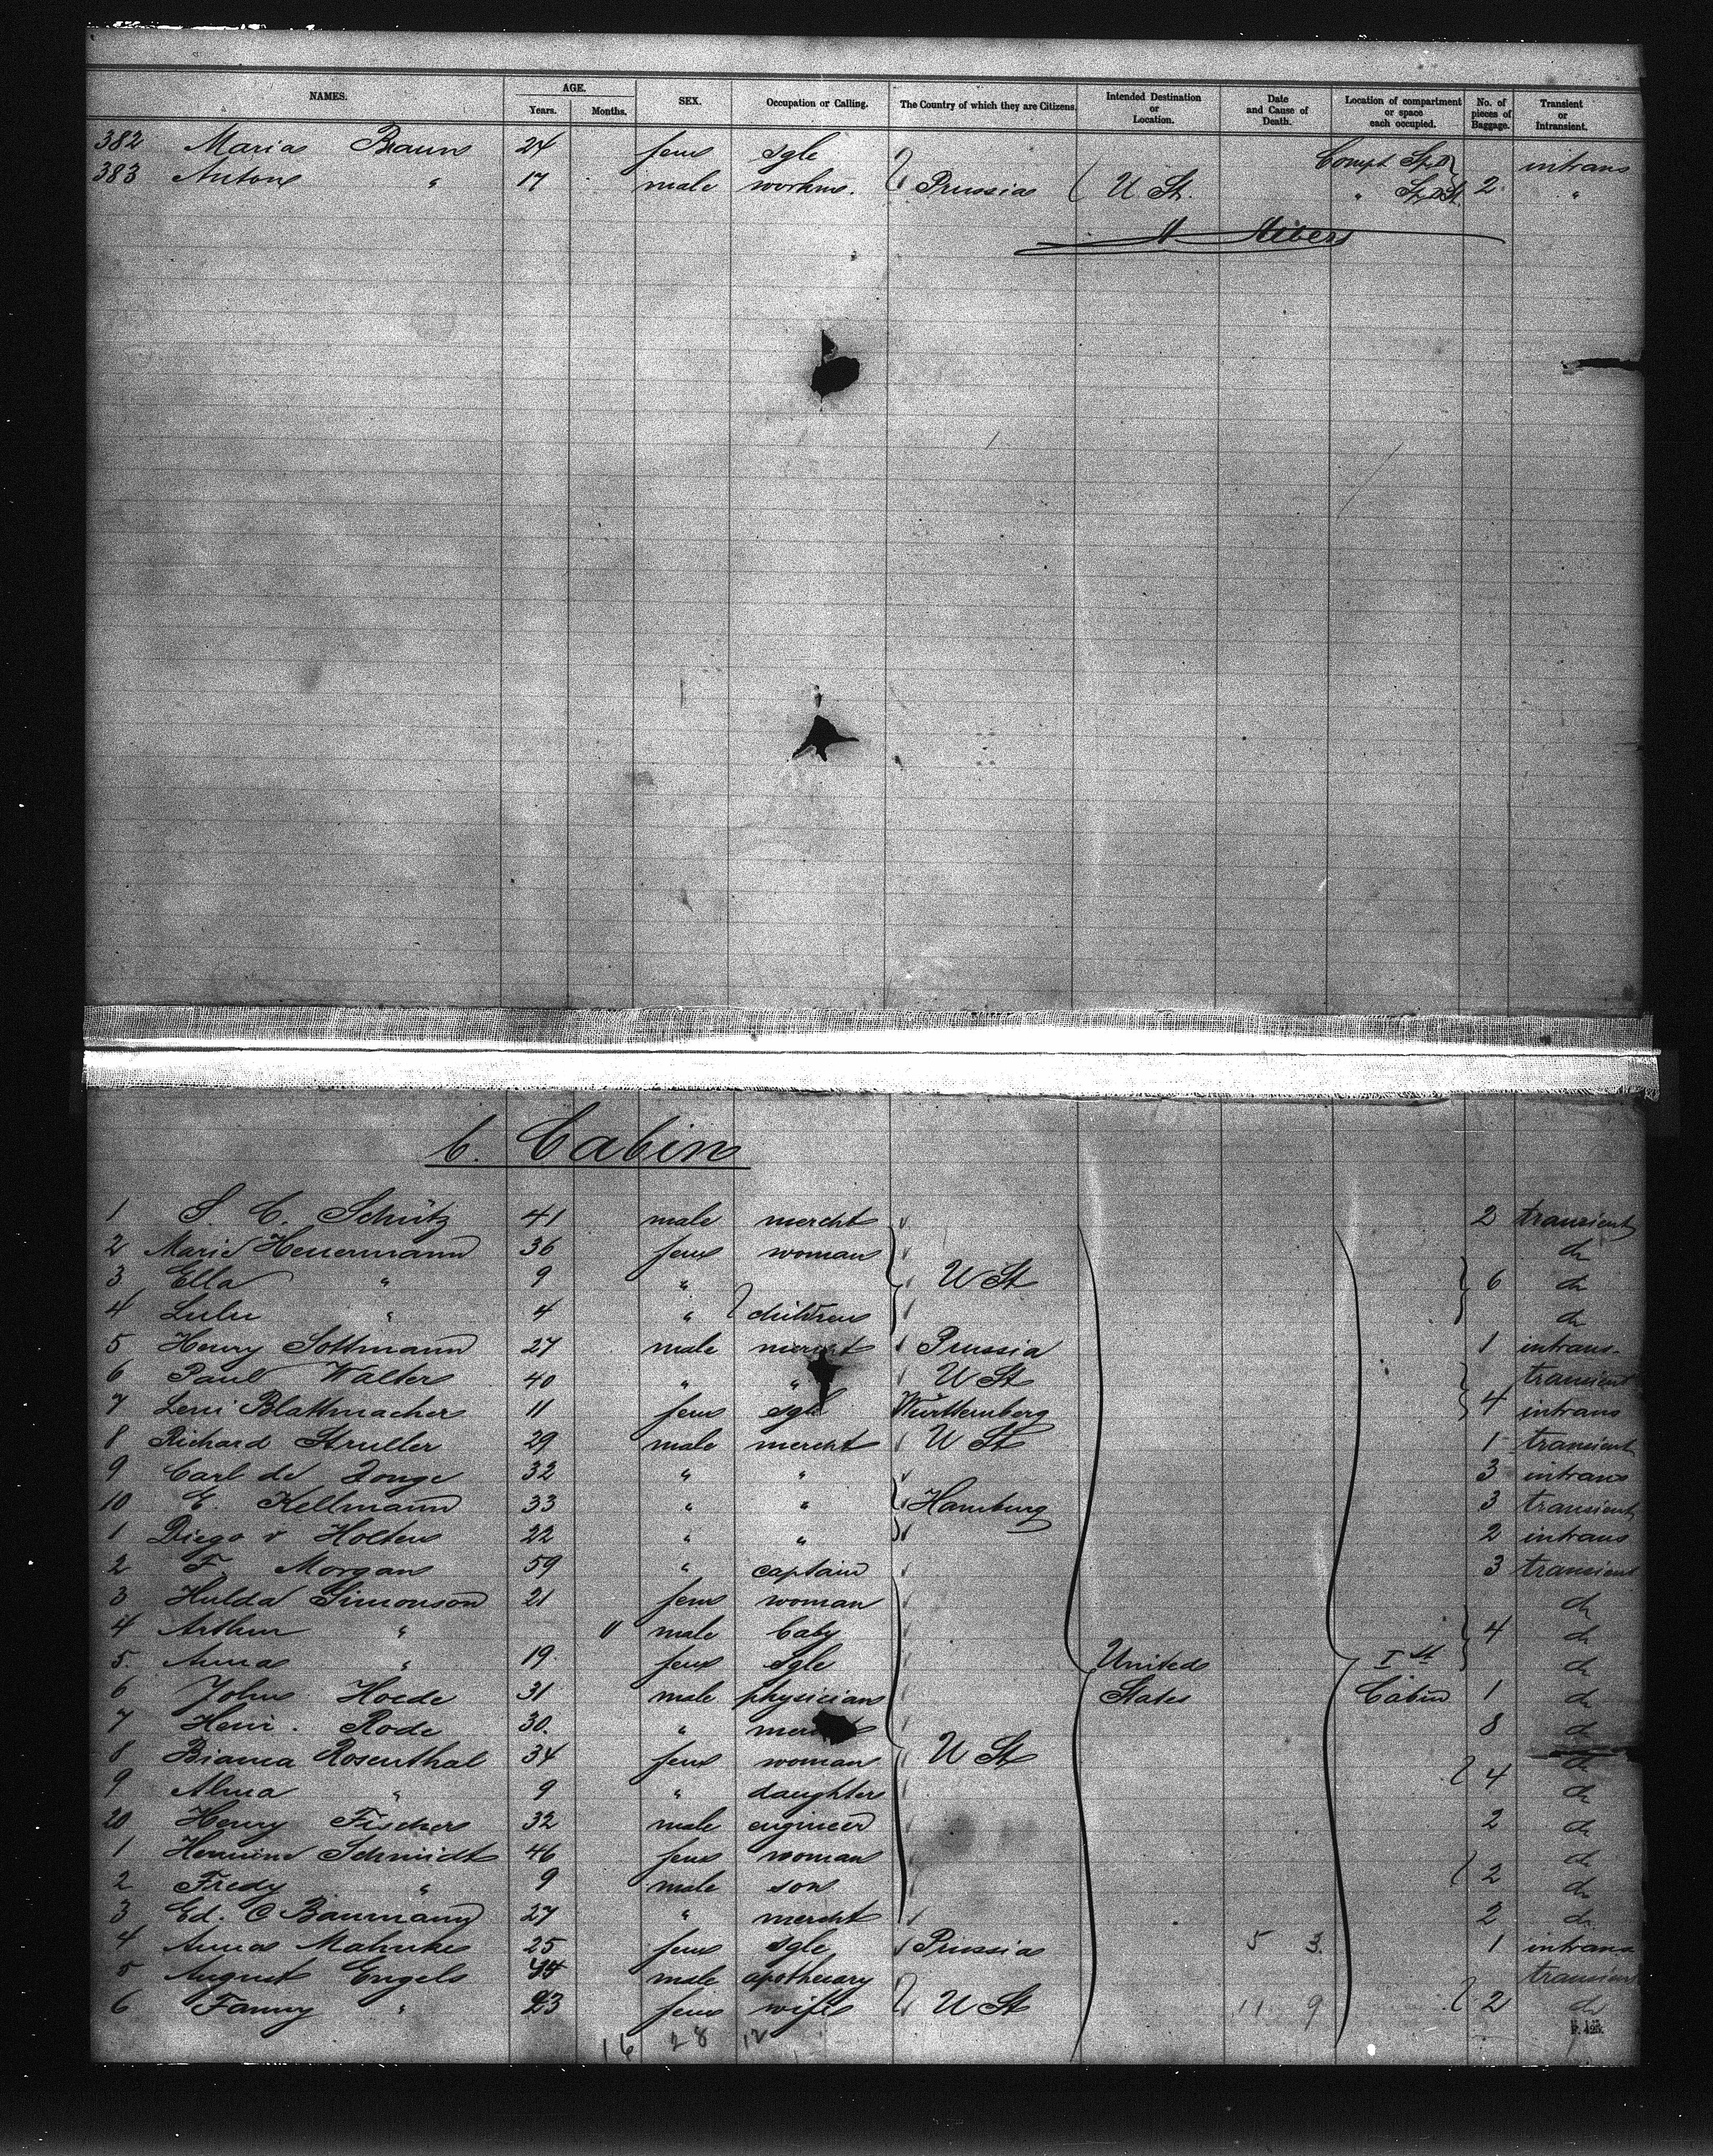 NAMES. AGE. Years. Months. SEX. Occupation or Calling. The Country of which they are Citizens. Intended Destination or Location. Date and Cause of Death. Location of compartment or space each occupied. No. of pieces of Baggage. Transient or Intransient.
382 Maria Braun 24 fem sgle Compt intrans
383 Anton " 17 male workm. Prussia U. St. " 2 "
b. Cabin
1 S. C. Schütz 41 male mercht 2 transient
2 Marie Heuermann 36 fem woman do
3 Ella " 9 " U St 6 do
4 Lulu " 4 " children do
5 Henry Sottmann 27 male mercht Prussia 1 intrans.
6 Paul Walter 40 " " U St transient
7 Leni Blattmacher 11 fem sgle Württemberg 4 intrans
8 Richard Struller 29 male mercht U St 1 transient
9 Carl de Jonge 32 " " 3 intrans
10 E. Kellmann 33 " " Hamburg 3 transient
1 Diego v Holten 22 " " 2 intrans
2 F. Morgan 59 " captain 3 transient
3 Hulda Simonson 21 fem woman do
4 Arthur " 11 male baby 4 do
5. Anna " 19 fem sgle United Ist do
6 John Hoede 31 male physician States Cabin 1 do
7 Heinr. Rode 30. " mercht 8 do
8 Bianca Rosenthal 34 fem woman U St do
9 Alma " 9 " daughter 4 do
20 Henry Fischer 32 male engineer 2 do
1 Hermine Schmidt 46 fem woman do
2 Fredy " 9 male son 2 do
3 Ed. C Baumann 27 " mercht 2 do
4 Anna Mahnke 25 fem sgle Prussia 5 3. 1 intrans
5 August Engels male apothecary transient
6 Fanny " 23 fem wife U St 11 9 2 do
16 28 12